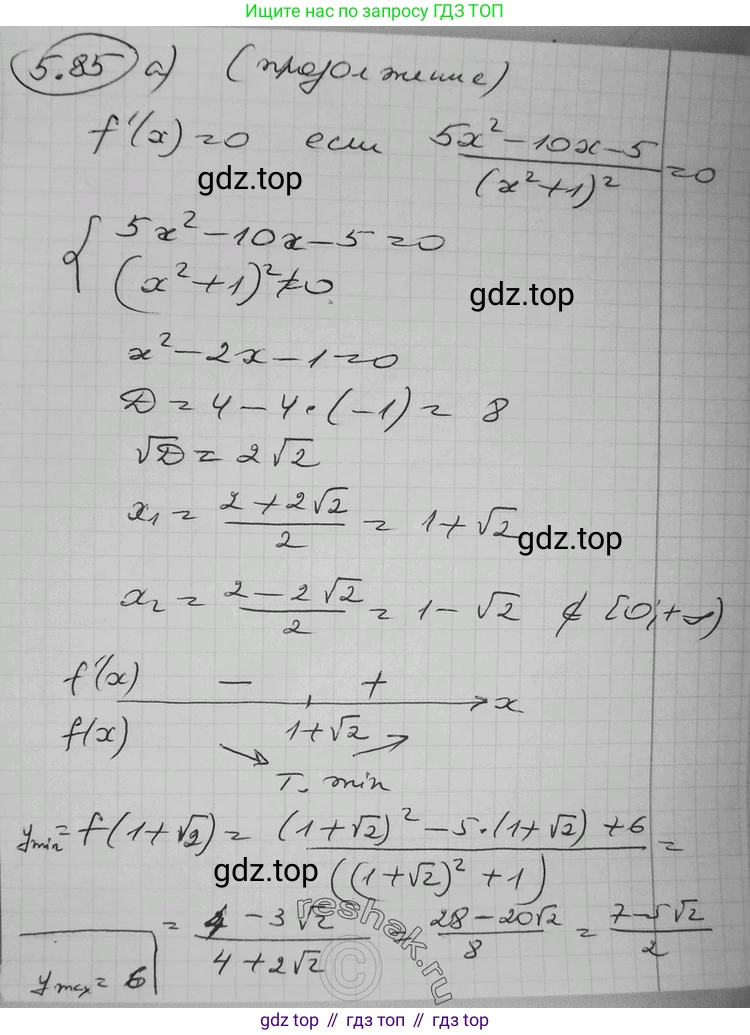 Больше решебников по запросу ГДЗ ТОП
5.85 а) (продолжение)
f'(x) = 0 если (5x² - 10x - 5)/(x² + 1)² = 0
gdz.top
{ 5x² - 10x - 5 = 0
(x² + 1)² ≠ 0
gdz.top
x² - 2x - 1 = 0
D = 4 - 4·(-1) = 8
√D = 2√2
x₁ = (2 + 2√2)/2 = 1 + √2
gdz.top
x₂ = (2 - 2√2)/2 = 1 - √2 ∉ [0; +∞)
f'(x) - + x
f(x) 1+√2
т. min
y min = f(1+√2) = ((1+√2)² - 5·(1+√2) + 6)/((1+√2)² + 1) =
gdz.top
reshak.ru
= (4 - 3√2)/(4 + 2√2) = (28 - 20√2)/8 = (7 - 5√2)/2
y max = 6
gdz.top // gdz.top // gdz.top // gdz.top